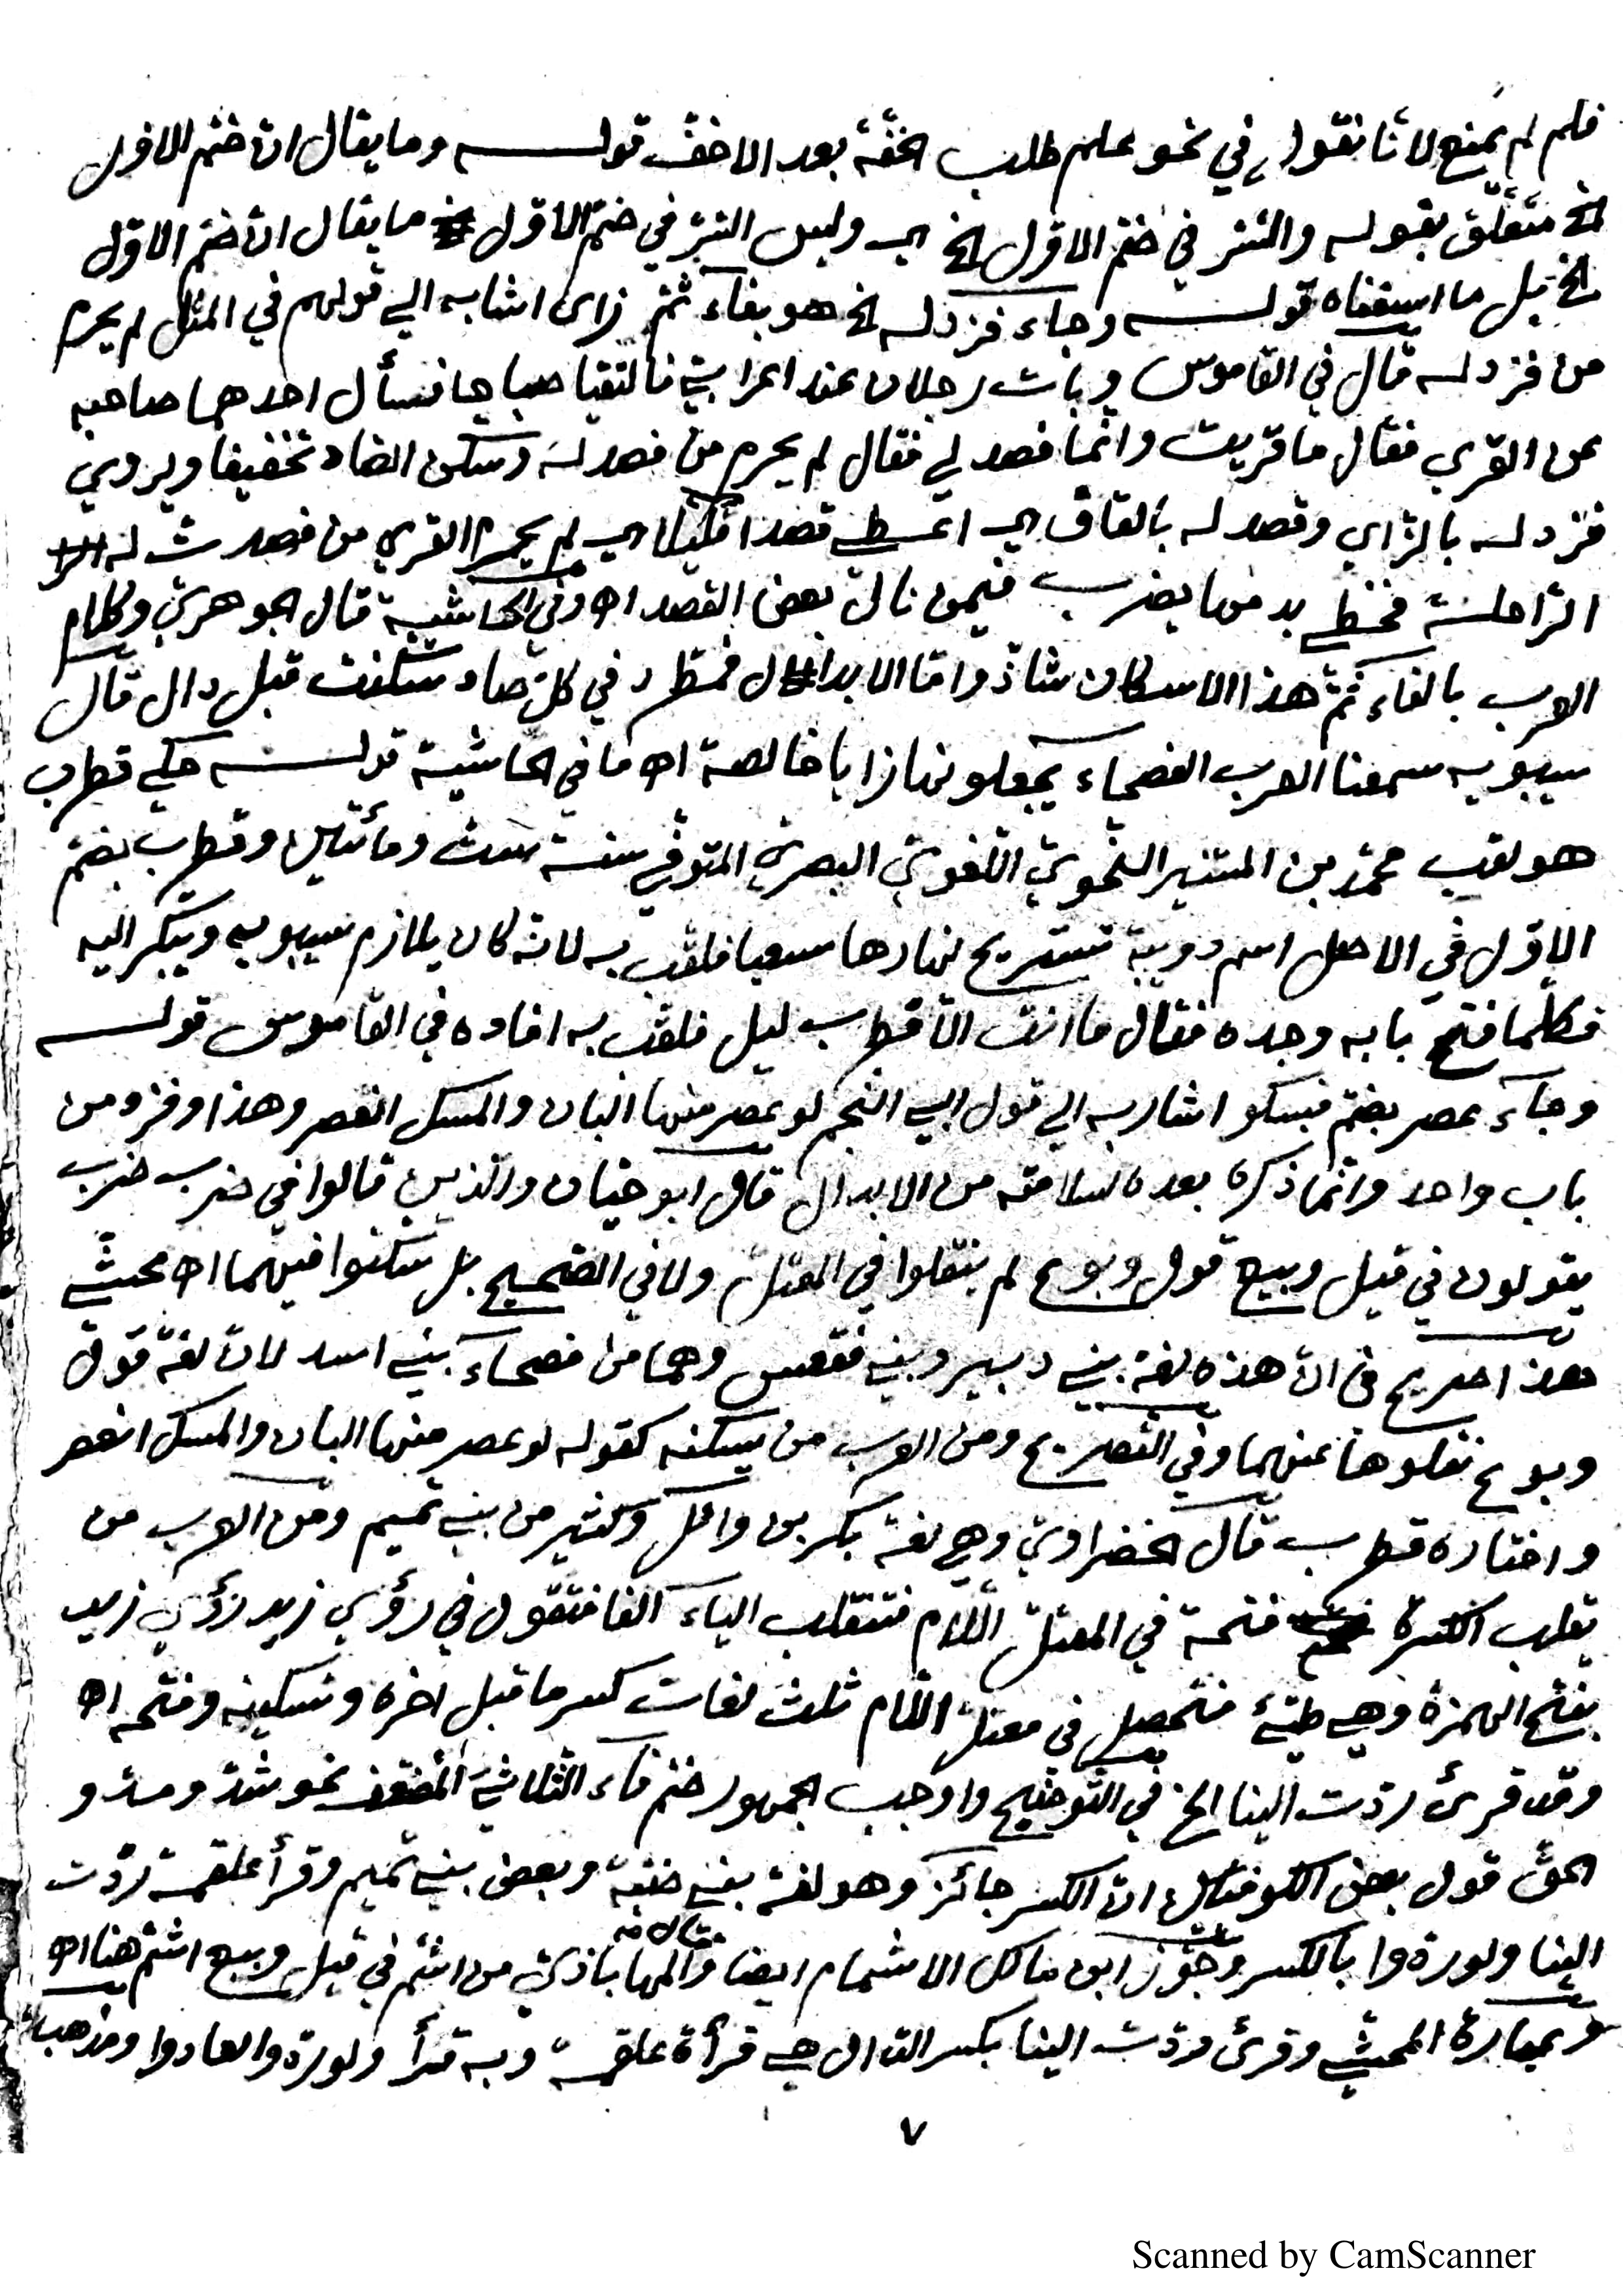 فلم لم يمنع لانا نقول في نحو علم طلب الخفّة بعد الاخفّ قولـه وما يقال انّ ضمّ الاول
الخ متعلّق بقوله والسّر في ضمّ الاوّل الخ اي وليس السّر في ضمّ الاوّل ما يقال انّ ضمّ الاوّل
الخ بل ما اسلفناه قولـه وجاء فزد له الخ هو بفاء ثمّ زاى اشار به الي قولهم في المثل لم يحرم
من فزد له قال في القاموس وبات رجلان عند اعرابيّ فالتقيا صباحا فسأل احدهما صاحبه
عن القري فقال ما قريت وانّما فصد لي فقال لم يحرم من فصد له وسكن الصاد تخفيفا ويروي
فزد له بالزّاي وقصد له بالقاف اي اعطي قصدا اي قليلا اي لم يحرم القري من فصدت له
الرّاحلة فحظي بدمها يضرب فيمن نال بعض القصد اه وفي الحاشية قال الجوهريّ وكلام
العرب بالفاء ثمّ هذا الاسكان شاذ وامّا الابدال فمطرد في كلّ صاد سكنت قبل دال قال
سيبويه سمعنا العرب الفصحاء يجعلونها زايا خالصة اه ما في الحاشية قولـه حكي قطرب
هو لقب محمّد بن المستنير النّحويّ اللّغويّ البصريّ المتوفّي سنة ستّ ومأتين وقطرب بضمّ
الاوّل في الاصل اسم دويبّة تستريح نهارها سعيا فلقّب به لانه كان يلازم سيبويه ويبكّر اليه
فكلّما فتح بابه وجده فقال ما انت الّا قطرب ليل فلقّب به افاده في القاموس قولـه
وجآء عصر بضمّ فسكو اشار به الي قول ابي النجم لو عصر منها البان والمسك انعصر وهذا وفزد من
باب واحد وانّما ذكره بعده لسلامته من الابدال قال ابو حيّان والّذين قالوا في ضرب ضرب
يقولون في قيل وبيع قول وبوع لم ينقلوا في المعتلّ ولا في الصّحيح بل سكنوا فيهما اه محشّي
هذا صريح في انّ هذه لغة بني دبير وبني فقعس وهما من فصحاء بني اسد لانّ لغة قول
وبوع نقلوها عنهما وفي التّصريح ومن العرب من يسكنه كقوله لو عصر منها البان والمسك انعصر
واختاره قطرب قال الخضراويّ وهي لغة بكر بن وائل وكثير من بني تميم ومن العرب من
يقلب الكسرة فتحة في المعتلّ اللّام فتنقلب الياء الفا فتقول في رؤي زيد رؤي زيد
بفتح الهمزة وهي طيّئ فتحصل في معتلّ اللّام ثلث لغات كسر ما قبل اخره وتسكينه وفتحه اه
وقد قرئ ردّت الينا الخ في التّوضيح واوجب الجمهور ضمّ فاء الثّلاثيّ المضعّف نحو شدّ ومدّ و
الحقّ قول بعض الكوفيّين انّ الكسر جائز وهو لغة بني ضبّة وبعض بني تميم وقرأ علقمة ردّت
الينا ولو ردّوا بالكسر وجوّز ابن مالك الاشمام ايضا وقال المهاباذيّ من اشمّ في قيل وبيع اشمّ هنا اه
وعبارة المحشّي وقرئ ردّت الينا بكسر الدّال هي قرأة علقمة وبه قرأ ولو ردّوا لعادوا ومذهب
٧
Scanned by CamScanner